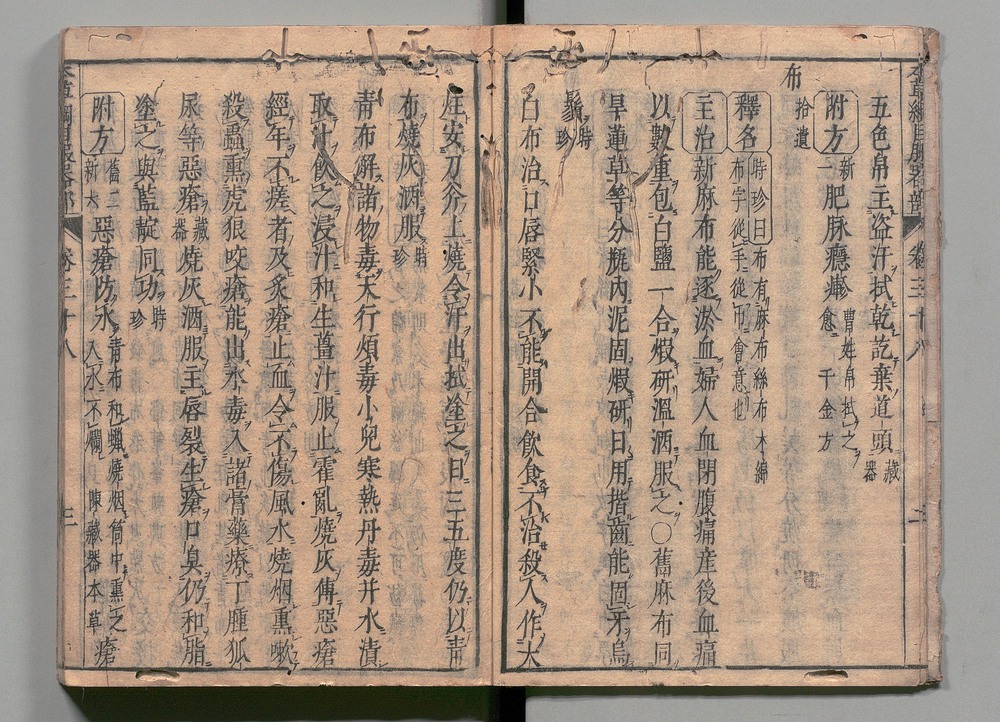 五色帛主盗汗拭乾訖棄道頭藏器
附方新一肥脉癮𤺋曹姓帛拭之愈千金方
布拾遺
釋名時珍曰布有麻布絲布木綿布字從手從巾會意也
主治新麻布能逐淤血婦人血閉腹痛産後血痛
以數重包白鹽一合煆研溫酒服之○舊麻布同
旱蓮草等分瓶內泥固煆研日用揩齒能固牙烏
鬚時珍
白布治口唇緊小不能開合飲食不治殺人作大
炷安刀斧上燒令汗出拭塗之日三五度仍以青
布燒灰酒服時珍
青布解諸物毒天行煩毒小兒寒熱丹毒并水漬
取汁飲之浸汁和生薑汁服止霍亂燒灰傅惡瘡
經年不瘥者及灸瘡止血令不傷風水燒烟熏嗽
殺蟲熏虎狼咬瘡能出水毒入諸膏藥療丁腫狐
尿等惡瘡藏器燒灰酒服主唇裂生瘡口臭仍和脂
塗之與藍靛同功時珍
附方舊二新六惡瘡防水青布和蠟燒烟筒中熏之入水不爛陳藏器本草瘡
本草綱目服器部 卷三十八